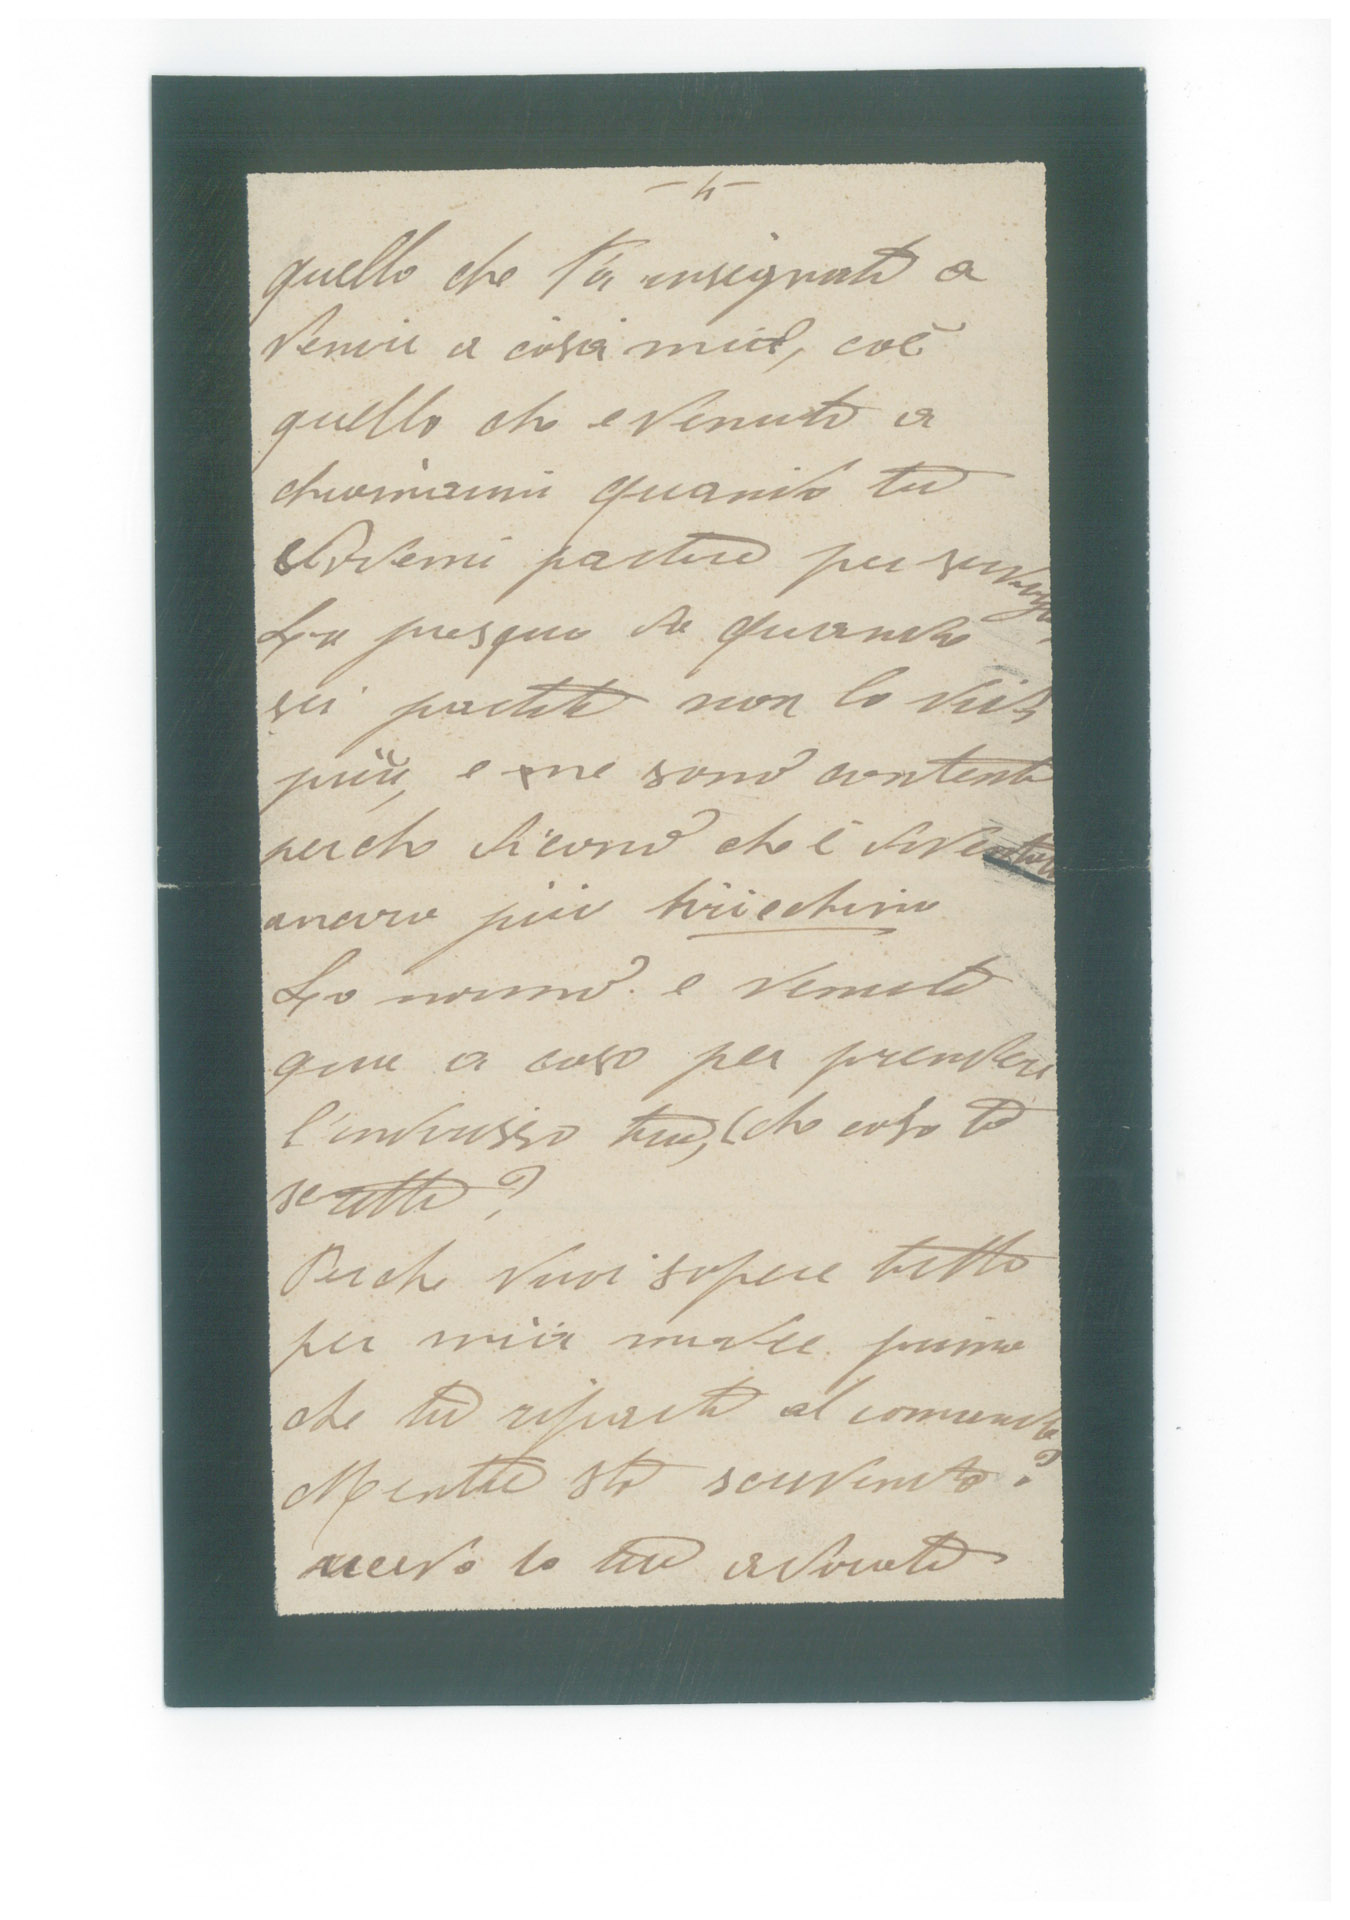 - 4 -
quello che t'à insegnato a
venire a casa mia, coè
quello che e venuto a
chiamarmi quando tu
dovevi partire per
La presquo da quando
sei partito non lo vidi
più, e me sono contento
perche dicono che è diventato
ancora più biricchino
Lo nonno e venuto
qui a casa per prendere
l'indrisso tuo, (che cosa to
scritto?
Perche vuoi sapere tutto
per mia madre prima
che tu riparti al comando?
Mentre sto scrivendo
ricevo lo tuo